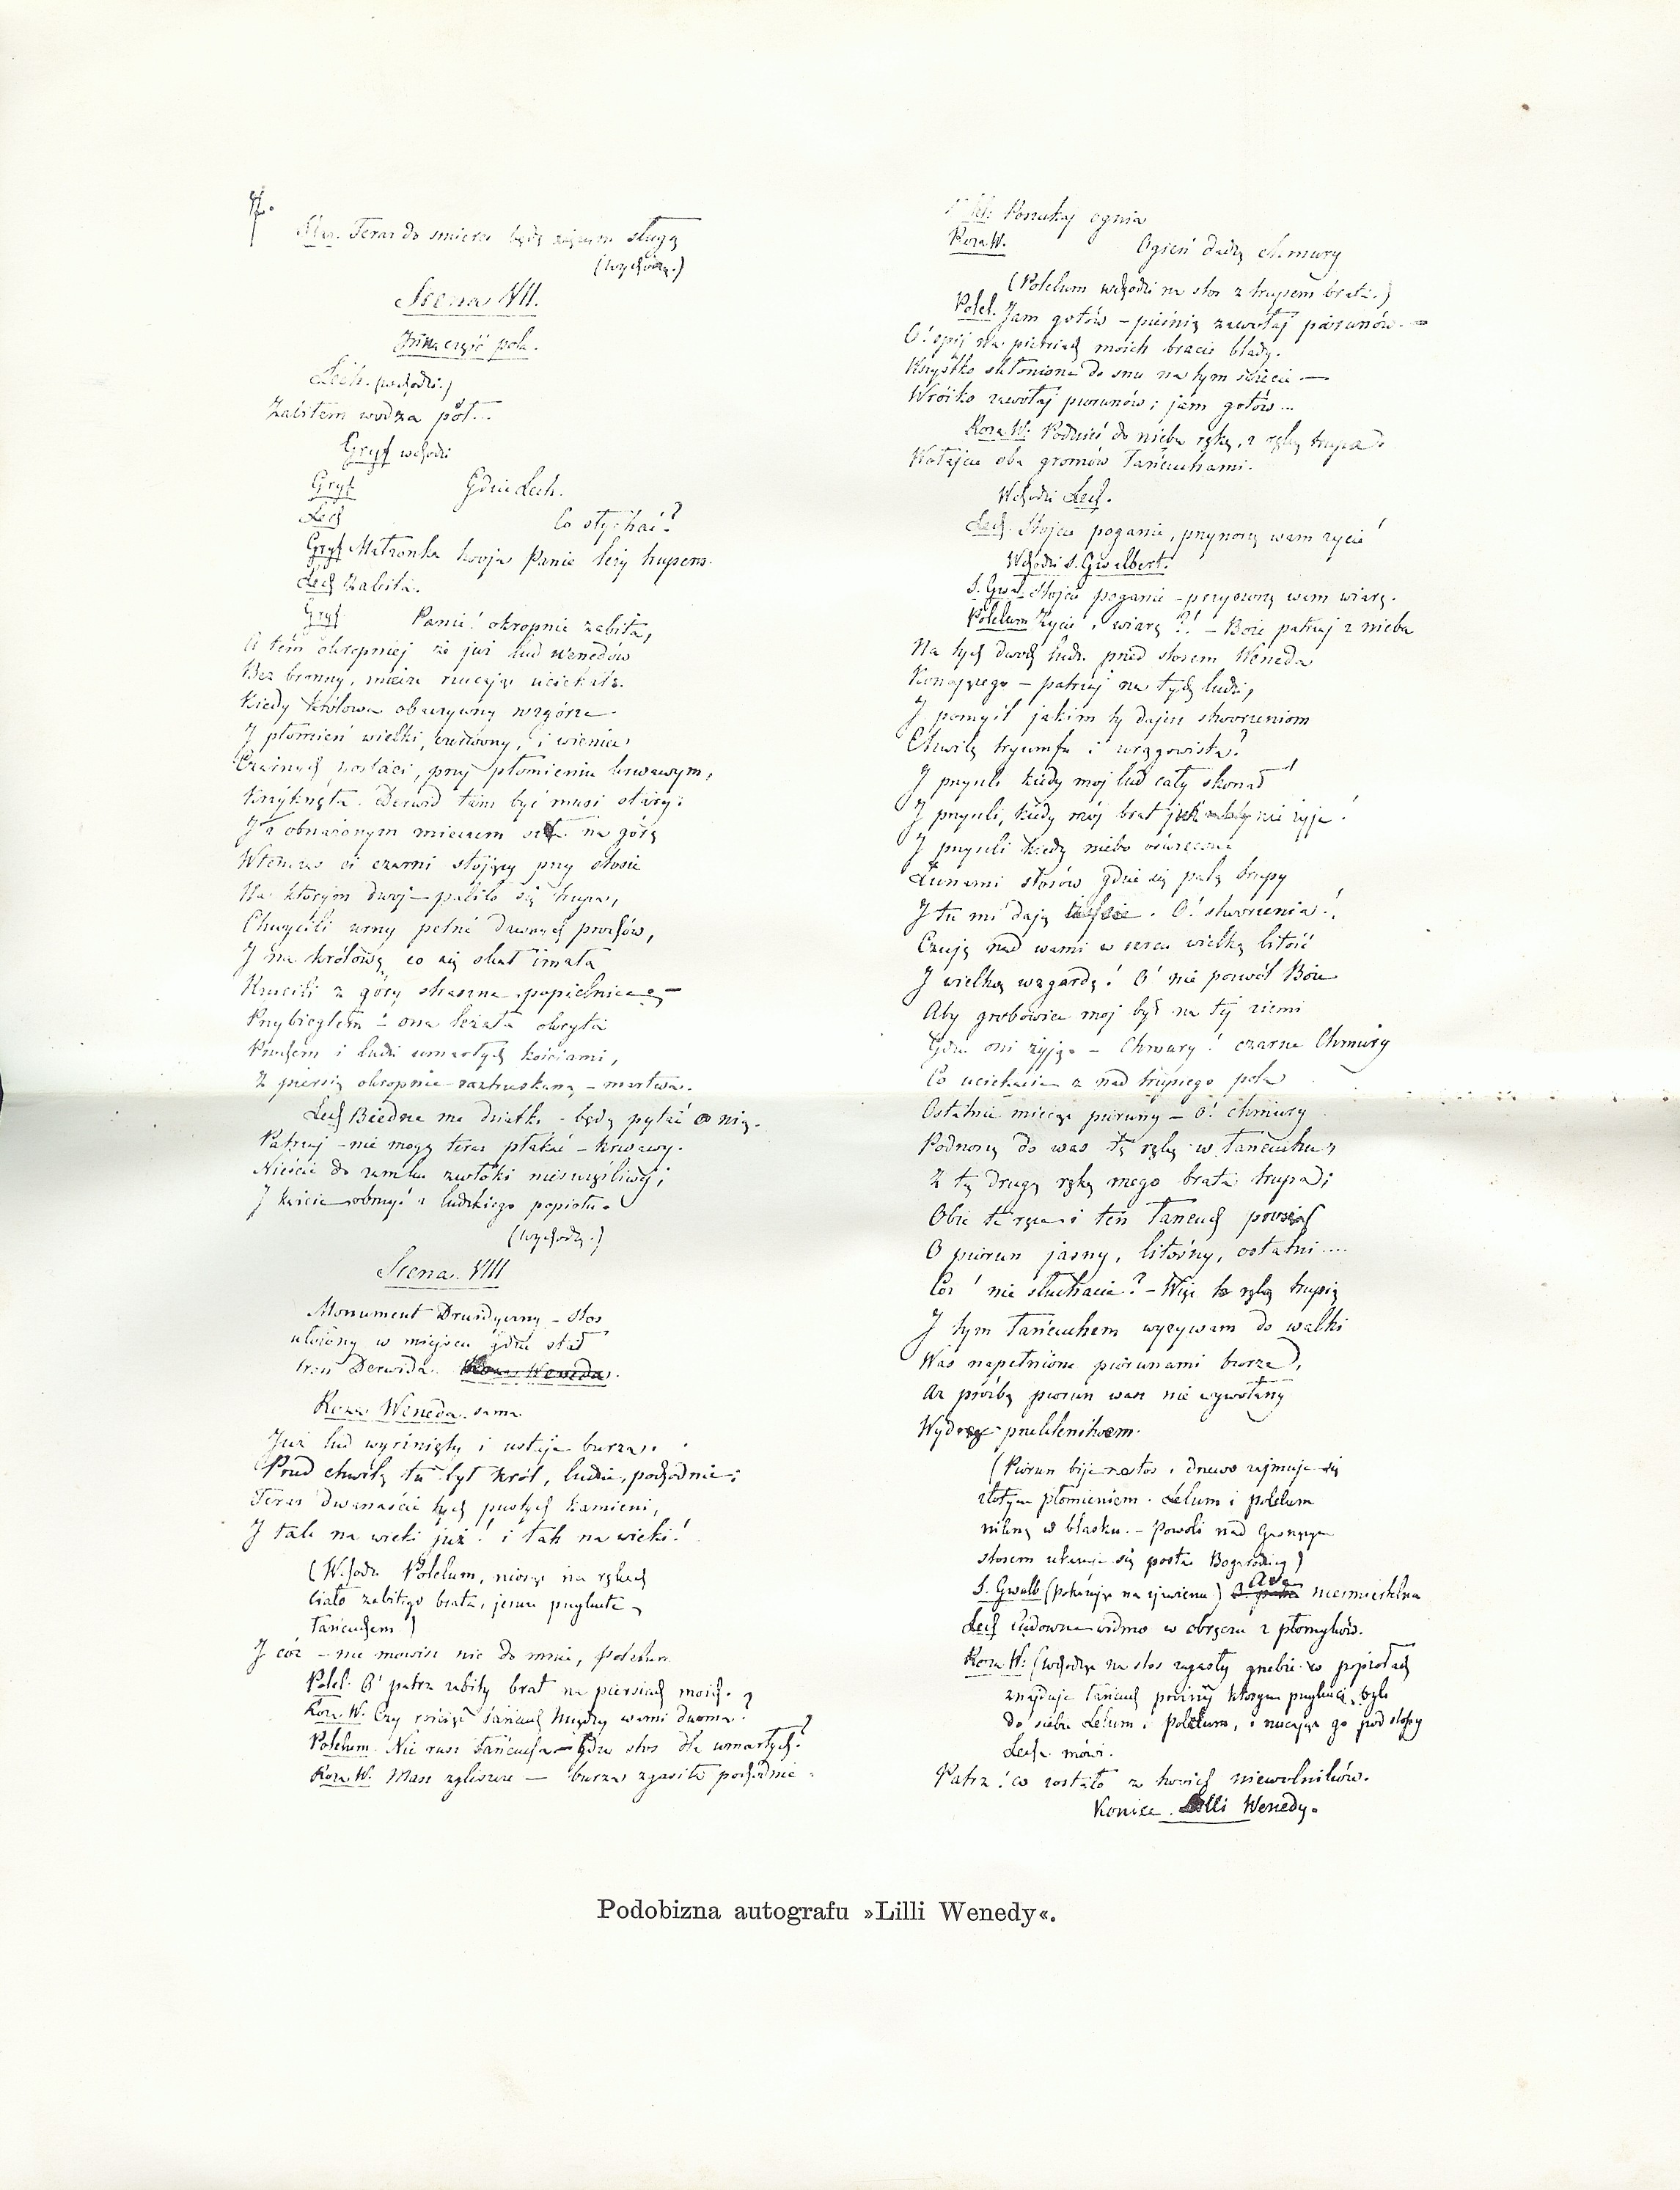 Teraz do smierci będę waszym sługą
(wychodzą.)
Scena VII.
Inna część pola.
Lech. (wchodzi.)
Zabiłem wodza pół...
Gryf wchodzi
Gryf Gdzie Lech.
Lech Co słychać?
Gryf Małżonka twoja Panie leży trupem.
Lech Zabita.
Gryf Panie! okropnie zabita,
A tém okropniej że już lud Wenedów
Bez bronny, miecze rzucając uciekał.
Kiedy królowa obaczywszy na górze
I płomień wielki, czerwony, i wieniec
Czarnych postaci, przy płomieniu krwawym,
Krzyknęła. Derwid tam być musi stary;
I z obnażonym mieczem szła na górę
Wtenczas ci czarni stojący przy stosie
Na którym dwoje paliło się trupa,
Chwycili urny pełne dawnych prochów,
I na królowę co się skał imała
Rzucili z góry straszne popielnice —
Przybiegłem – ona leżała okryta
Prochem i ludzi umarłych kościami,
Z piersią okropnie roztrzaskaną – martwa.
Lech Biedne me dziatki – będą pytać o nią.
Patrzaj – nie mogę teraz płakać – krwawy.
Nieście do zamku zwłoki nieszczęśliwej;
I każcie obmyć z ludzkiego popiołu.
(wychodzą.)
Scena. VIII
Monument Druidyczny – stos
ułożony w miejscu gdzie stał
tron Derwida. Roza Weneda.
Roza Weneda. sama
Już lud wyrżnięty i ustaje burza.
Przed chwilą tu był król, ludzie, pochodnie;
Teraz dwanaście tych pustych kamieni,
I tak na wieki już! i tak na wieki!
(Wchodzi Polelum, niosąc na rękach
ciało zabitego brata, jeszcze przykute
łańcuchem)
I cóż – nie mówisz nic do mnie, Polelum
Polel. O! patrz zabity brat na piersiach moich.
Roza W. Czy rościąć łańcuch między wami dwoma?
Polelum. Nie rusz łańcucha – Gdzie stos dla umarłych?
Roza W. Masz zgliszcze — burza zgasiła pochodnie
Poszukaj ognia
Roza W. Ogień dadzą chmury
(Polelum wchodzi na stos z trupem brata.)
Polel. Jam gotów – pieśnią zawołaj piorunów. –
O! śpij na piersiach moich bracie blady.
Wszystko skłonione do snu na tym świecie —
Wróżko zawołaj piorunów; jam gotów...
Roza W. Podnieś do nieba rękę, i rękę trupa
Wołajcie oba gromów łańcuchami.
Wchodzi Lech.
Lech. Stójcie poganie, przynoszę wam życie!
Wchodzi S. Gwalbert.
S. Gwal. Stójcie poganie – przynoszę wam wiarę.
Polelum Życie i wiarę?! – Boże patrzaj z nieba
Na tych dwoch ludzi przed stosem Weneda
Konającego – patrzaj na tych ludzi,
I pomyśl jakim ty dajesz stworzeniom
Chwilę tryumfu i urągowiska?
I przyszli kiedy mój lud cały skonał!
I przyszli, kiedy mój brat już nie żyje!
I przyszli kiedy niebo oświecone
Łunami stosów gdzie się palą trupy
I tu mi dają . O! stworzenia!
Czuję nad wami w sercu wielką litość
I wielką wzgardę! O! nie pozwól Boże
Aby grobowiec mój był na tej ziemi
Gdzie oni żyją. – Chmury! czarne Chmury
Co uciekacie z nad trupiego pola
Ostatnie miecąc pioruny – o! chmury
Podnoszę do was tę rękę w łańcuchu,
Z tą drugą ręką mego brata trupa;
Obie te ręce i ten łańcuch proszą
O piorun jasny, litośny, ostatni....
Coż! nie słuchacie? – Więc tą ręką trupią
I tym łańcuchem wyzywam do walki
Was napełnione piorunami burze,
Aż prośbą piorun wasz nie wywołany
Wydrę przeklenstwem.
(Piorun bije na stos, drzewo zajmuje się
złotym płomieniem. Lelum i polelum
nikną w blasku. – Powoli nad gasnącym
stosem ukazuje się postać Bogarodzicy)
S. Gwalb (pokazując na zjawienie) Ave niesmiertelna
Lech Cudowne widmo w obręczu z płomyków.
Roza W: (wchodząc na stos zagasły grzebie w popiołach
znajduje łańcuch próżny ktorym przykuci byli
do siebie Lelum i Polelum, i rzucając go pod stopy
Lecha mówi.
Patrz! co zostało z twoich niewolników.
Koniec. Lilli Wenedy.
Podobizna autografu »Lilli Wenedy«.